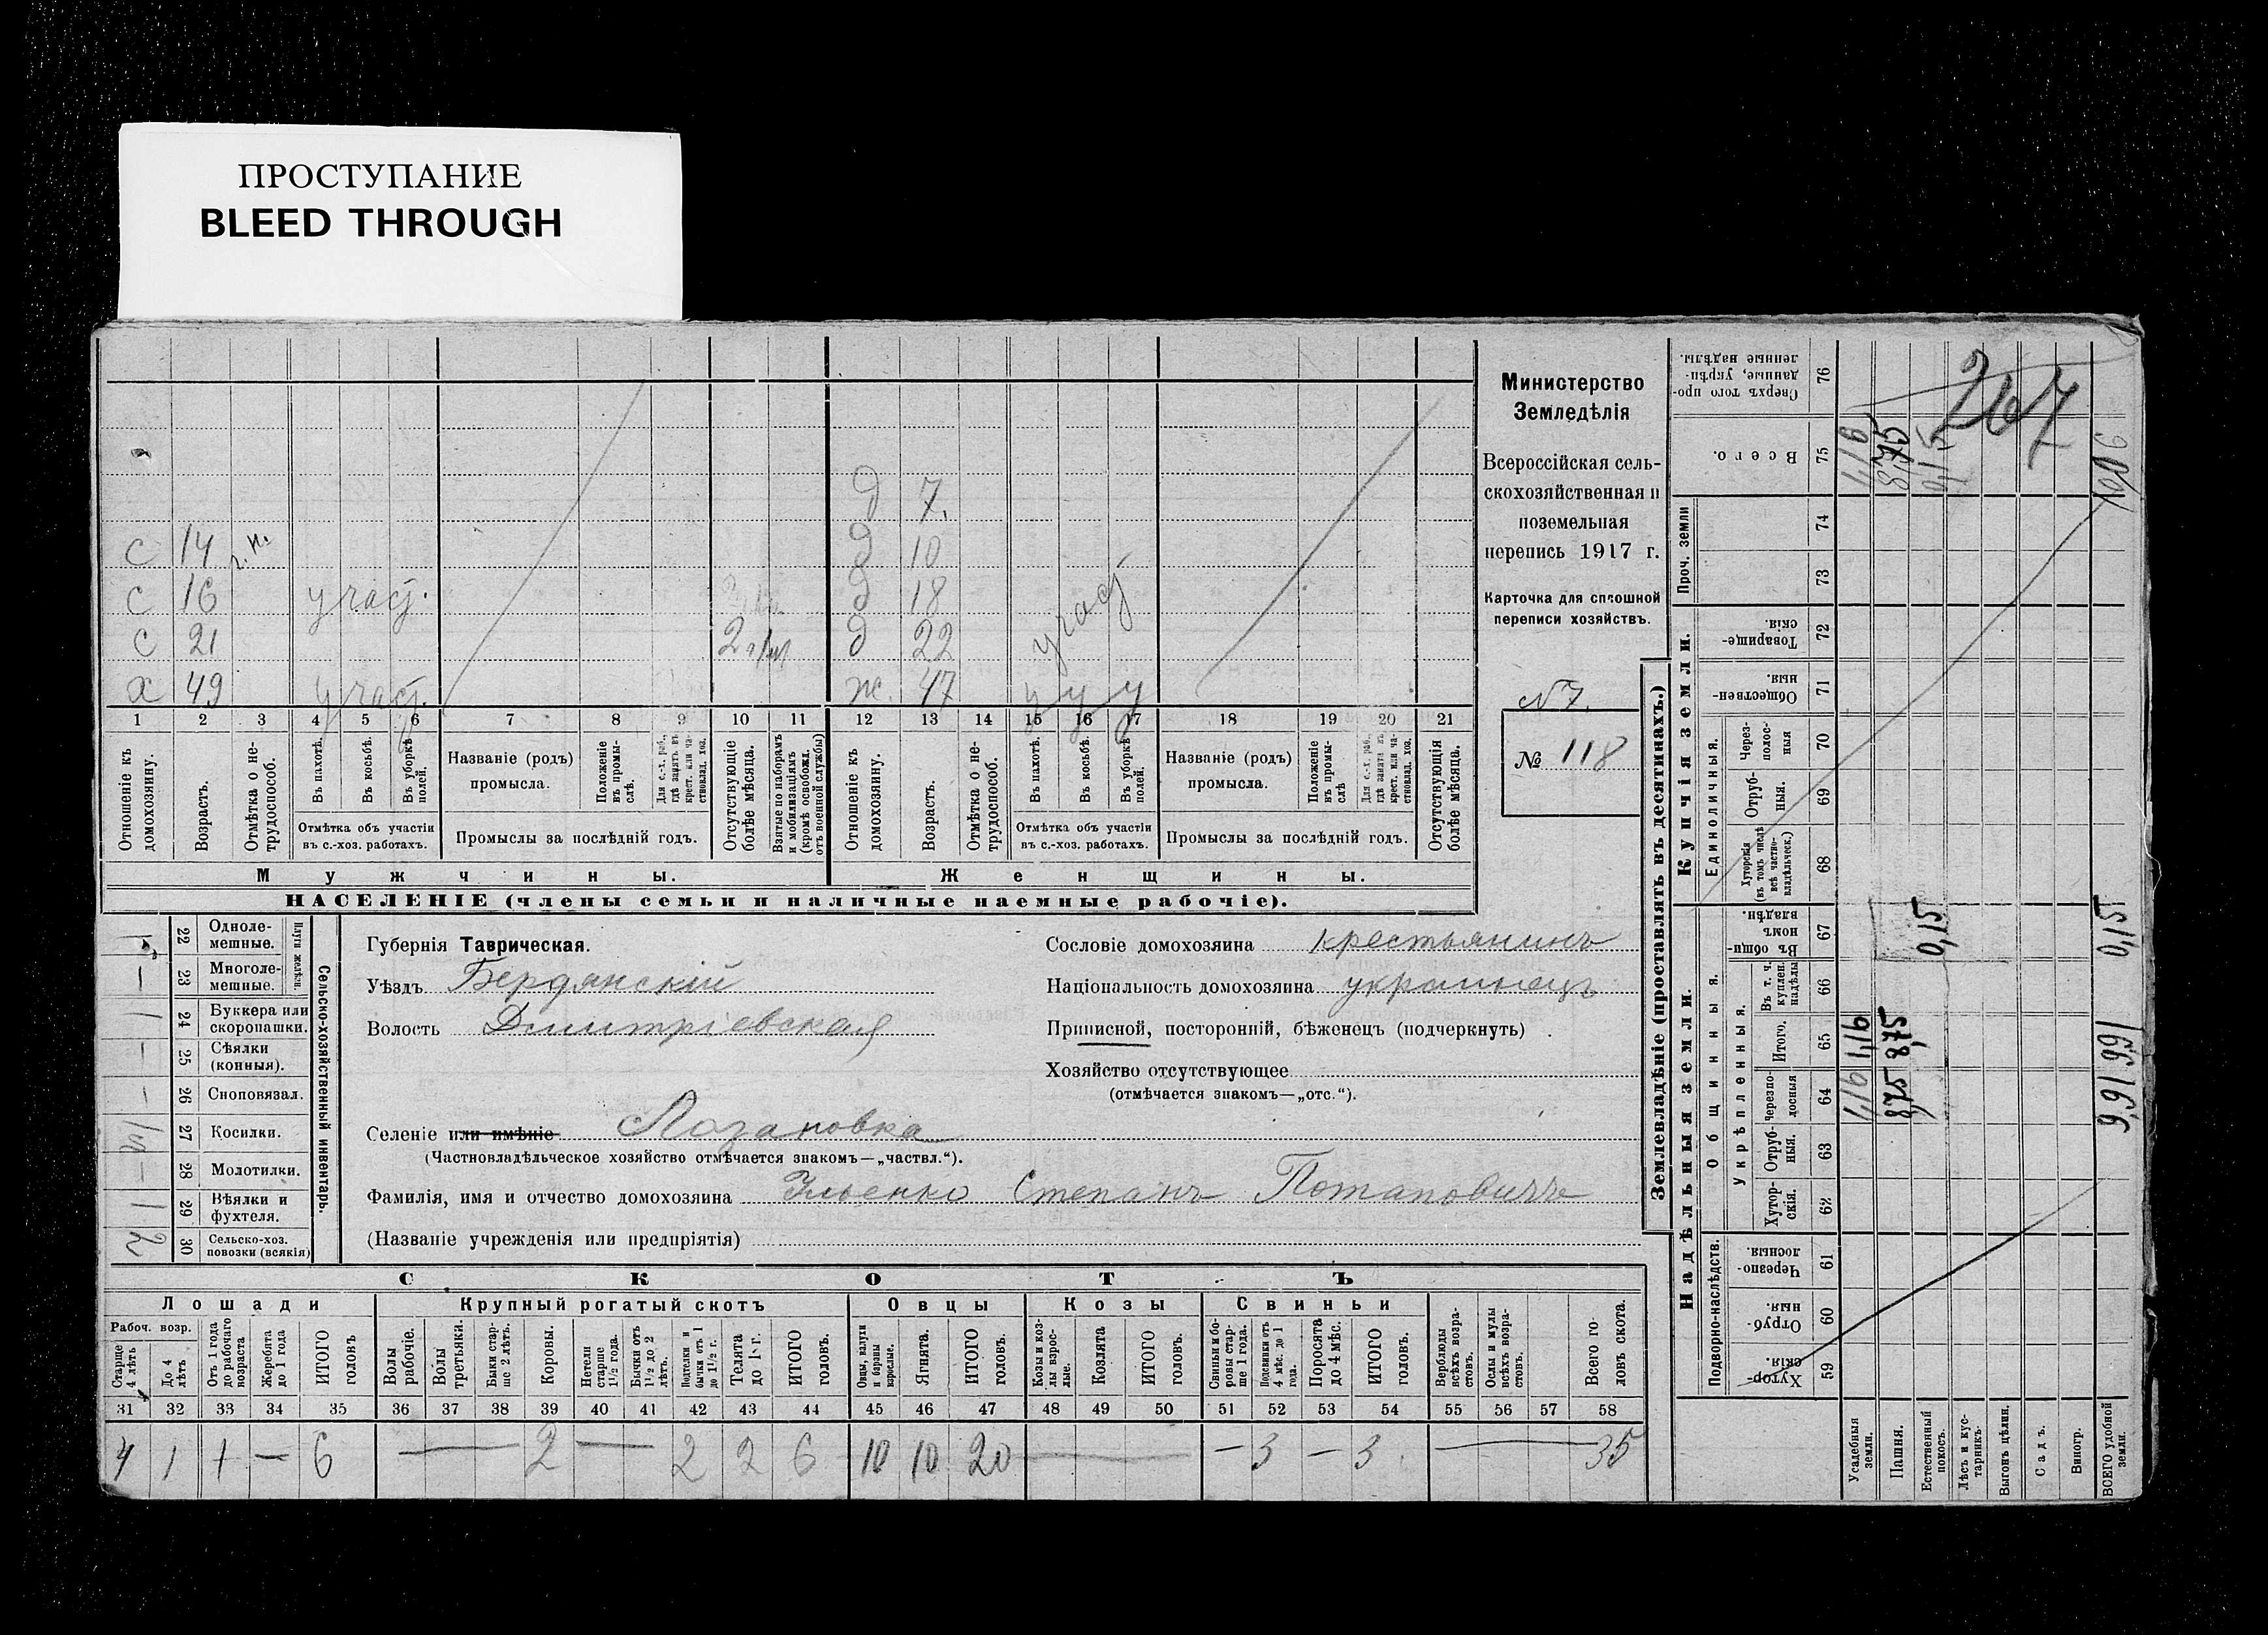 ПРОСТУПАНИЕ
BLEED THROUGH
д 7.
с 14 г. н. д 10
с 16 участ. д 18
с 21 2 д 22 участ
х 49 участ. ж. 47 у у у
1 2 3 4 5 6 7 8 9 10 11 12 13 14 15 16 17 18 19 20 21
Отношеніе къ домохозяину.
Возрастъ.
Отмѣтка о нетрудоспособ.
Въ пахотѣ.
Въ косьбѣ.
Въ уборкѣ полей.
Отмѣтка объ участіи въ с.-хоз. работахъ.
Названіе (родъ) промысла.
Положеніе въ промыслѣ.
Для с.-х. раб., гдѣ занятъ въ крест. или частновлад. хоз.
Промыслы за послѣдній годъ.
Отсутствующіе болѣе мѣсяца.
Взятые по наборамъ и мобилизаціямъ (кромѣ освобожд. отъ военной службы)
Отношеніе къ домохозяину.
Возрастъ.
Отмѣтка о нетрудоспособ.
Въ пахотѣ.
Въ косьбѣ.
Въ уборкѣ полей.
Отмѣтка объ участіи въ с.-хоз. работахъ.
Названіе (родъ) промысла.
Положеніе въ промыслѣ
Для с.-х. раб., гдѣ занята въ крест. или частновлад. хоз.
Промыслы за послѣдній годъ.
Отсутствующія болѣе мѣсяца.
Мужчины.
Женщины.
НАСЕЛЕНІЕ (члены семьи и наличные наемные рабочіе).
Министерство
Земледѣлія
Всероссійская сель-
скохозяйственная и
поземельная
перепись 1917 г.
Карточка для сплошной
переписи хозяйствъ.
№ 7.
№ 118
Плуги желѣзн.
22 Одноле-мешные. 1
23 Многоле-мешные. —
24 Буккера или скоропашки. 1
25 Сѣялки (конныя). —
26 Сноповязал. —
27 Косилки.
28 Молотилки. —
29 Вѣялки и фухтеля. 1
30 Сельско-хоз. повозки (всякія) 2
Сельско-хозяйственный инвентарь.
Губернія Таврическая.
Уѣздъ Бердянскій
Волость Дмитріевская
Селеніе или имѣніе Лозановка
(Частновладѣльческое хозяйство отмѣчается знакомъ—„частвл.“).
Фамилія, имя и отчество домохозяина Ильенко Степанъ Потаповичъ
(Названіе учрежденія или предпріятія)
Сословіе домохозяина крестьянинъ
Національность домохозяина украинецъ
Приписной, посторонній, бѣженецъ (подчеркнуть)
Хозяйство отсутствующее
(отмѣчается знакомъ—„отс.“).
СКОТЪ
Лошади
Крупный рогатый скотъ
Овцы
Козы
Свиньи
Рабоч. возр.
Старше 4 лѣтъ
До 4 лѣтъ
Отъ 1 года до рабочаго возраста
Жеребята до 1 года
ИТОГО головъ
Волы рабочіе.
Волы третьяки.
Быки старше 2 лѣтъ.
Коровы.
Нетели старше 1½ года.
Бычки отъ 1½ до 2 лѣтъ.
Подтелки и бычки отъ 1 до 1½ г.
Телята до 1 г.
ИТОГО головъ.
Овцы, валухи и бараны взрослые.
Ягнята.
ИТОГО головъ.
Козы и козлы взрослые.
Козлята
ИТОГО головъ.
Свиньи и боровы старше 1 года.
Подсвинки отъ 4 мѣс. до 1 года.
Поросята до 4 мѣс.
ИТОГО головъ.
Верблюды всѣхъ возрастовъ.
Ослы и мулы всѣхъ возрастовъ.
Всего головъ скота.
31 32 33 34 35 36 37 38 39 40 41 42 43 44 45 46 47 48 49 50 51 52 53 54 55 56 57 58
4 1 1 — 6 — 2 — 2 2 6 10 10 20 — — 3 — 3 — 35
Землевладѣніе (проставлять въ десятинахъ.)
Надѣльныя земли.
Купчія земли.
Проч. земли
Сверхъ того проданные, укрѣпленные надѣлы. 76
Всего. 75
74
73
Товарищескія. 72
Общественныя. 71
Единоличныя.
Черезполосныя 70
Отрубныя. 69
Хуторскія (въ томъ числѣ всѣ частновладѣльческ.) 68
Общинныя.
Въ общинномъ владѣн. 67
Укрѣпленныя.
Въ т. ч. куплен. надѣлы 66
Итого. 65
Черезполосныя 64
Отрубныя. 63
Хуторскія. 62
Подворно-наслѣдств.
Черезполосныя. 61
Отрубныя. 60
Хуторскія. 59
Усадебныя земли. 1,16 1,16 1,16
Пашня. 8,75 8,75 8,75
Естественный покосъ. 0,15 0,15
Лѣсъ и кустарникъ.
Выгонъ цѣлин.
Садъ.
Виногр.
ВСЕГО удобной земли. 0,15 10,06
267